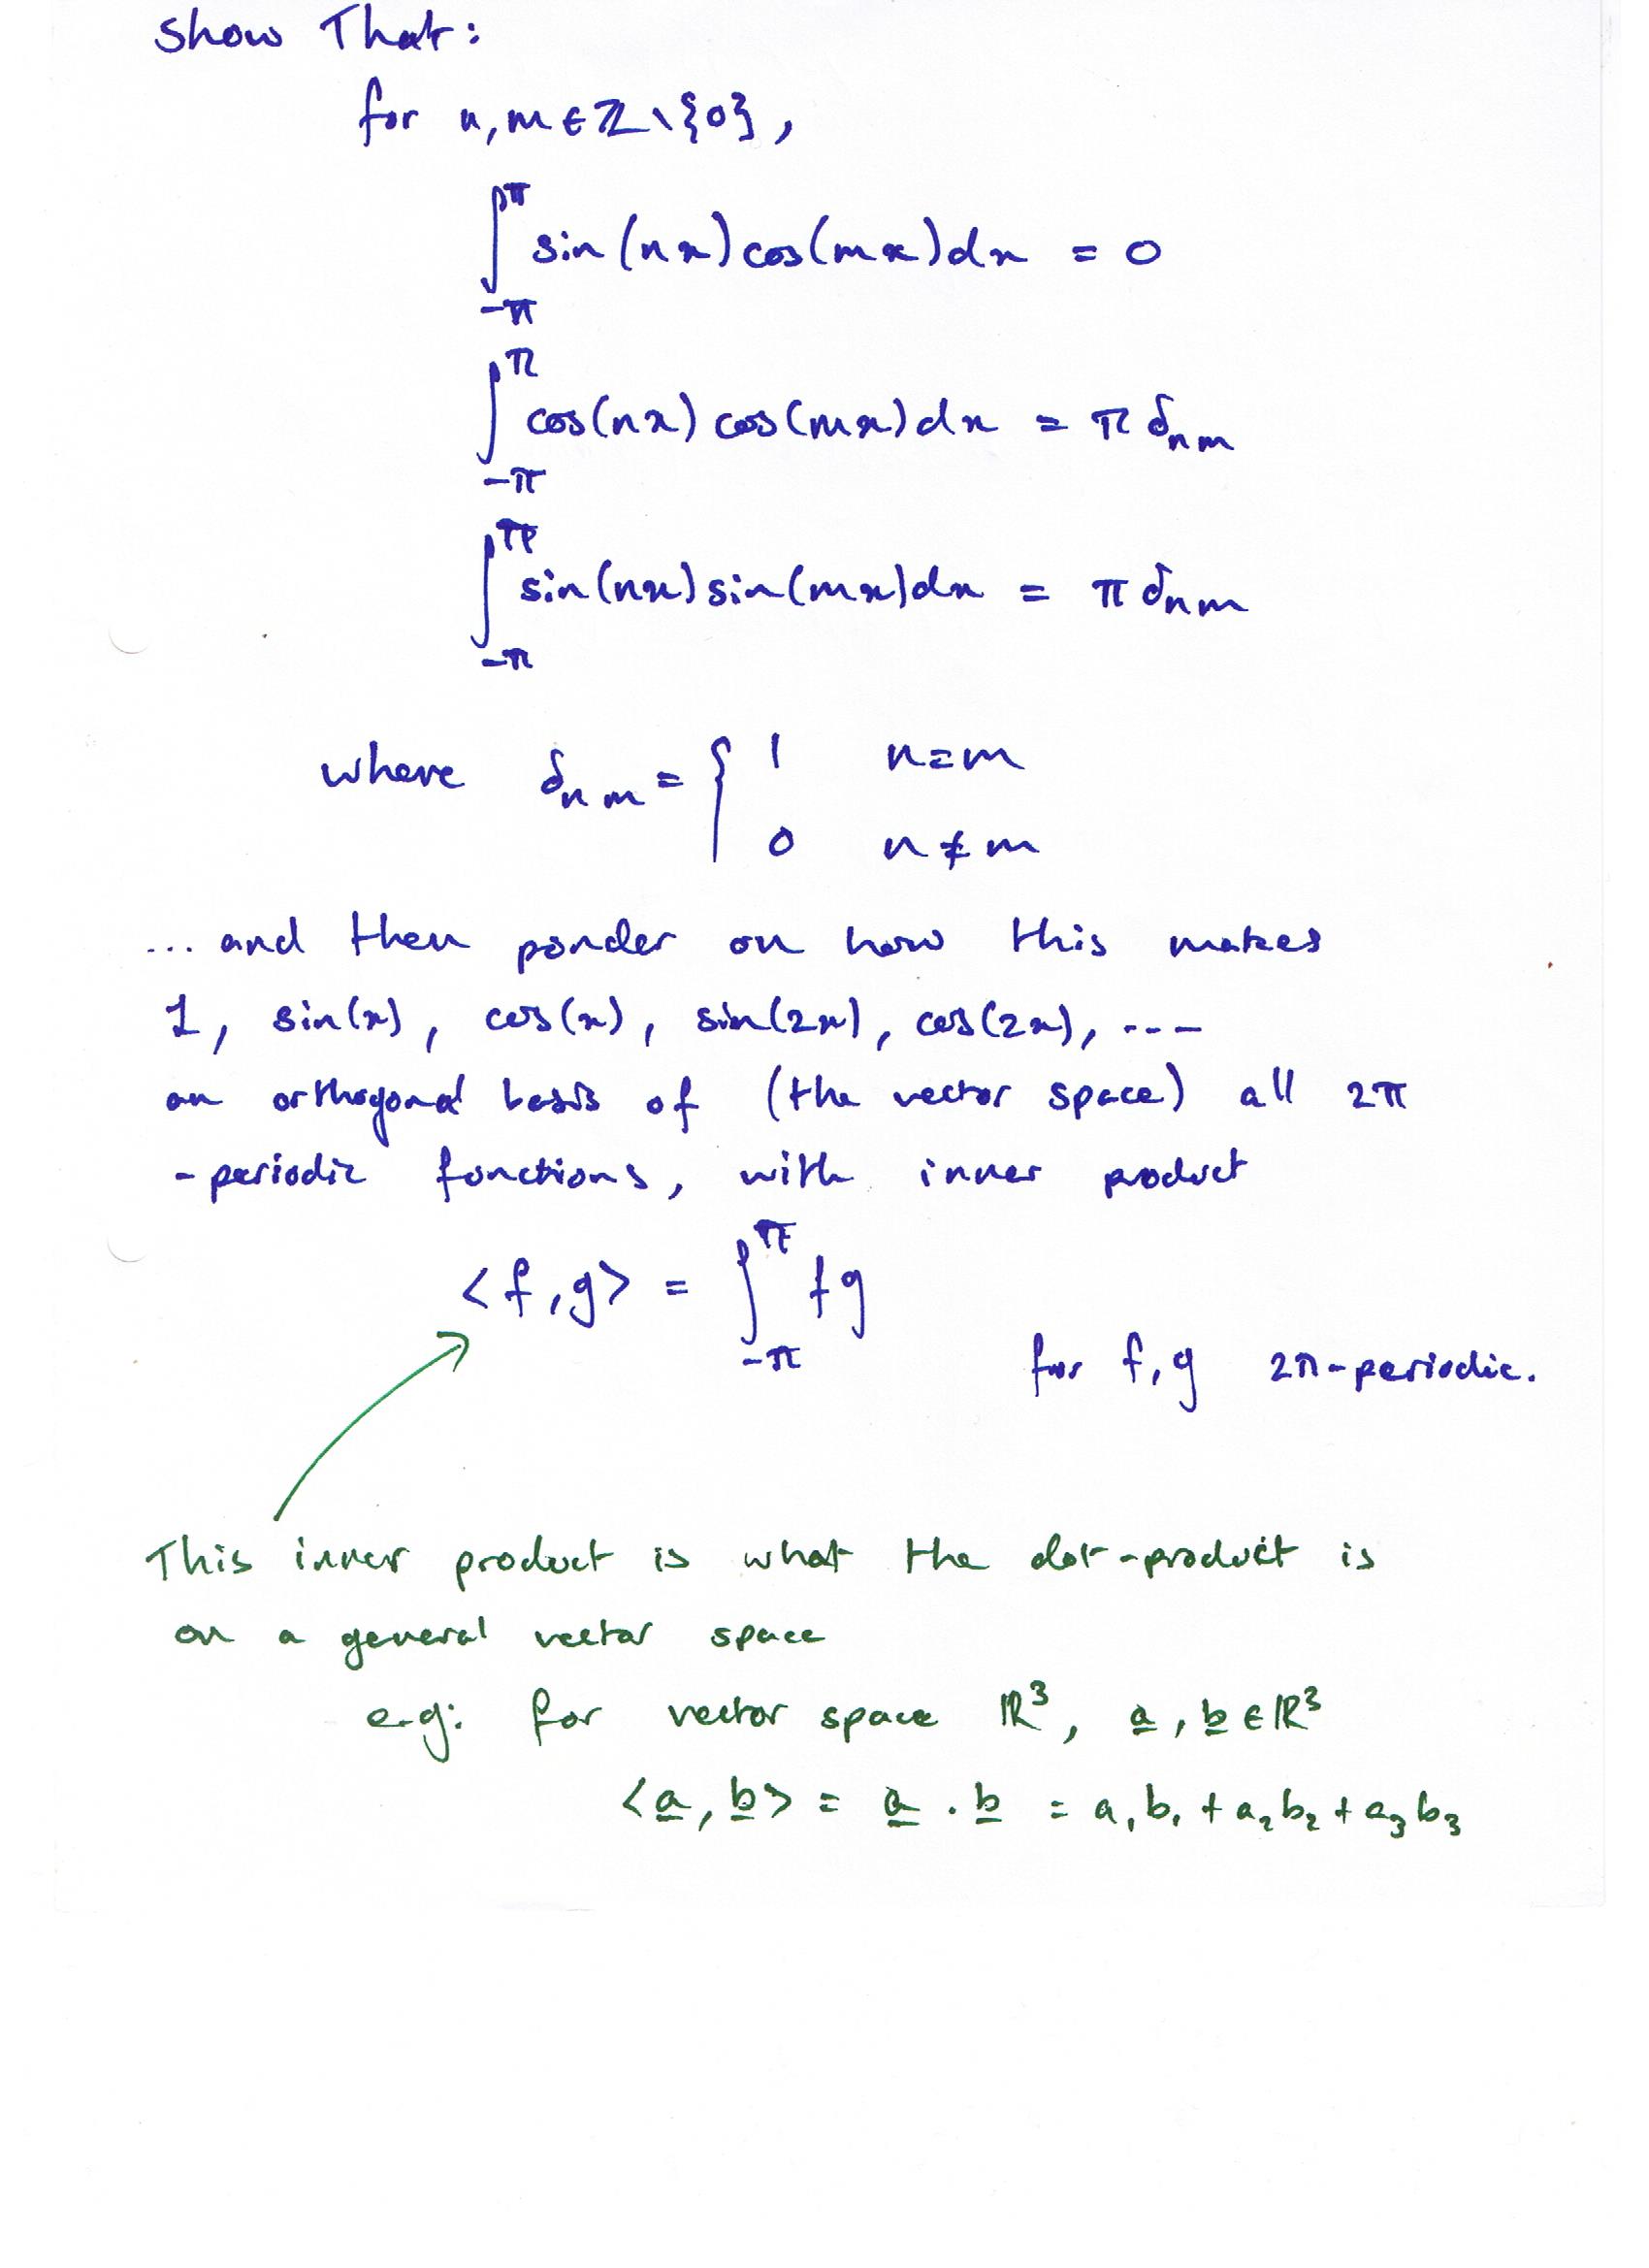 Show That:
for n, m ∈ ℤ \ {0},
∫_{-π}^{π} sin(nx) cos(mx) dx = 0
∫_{-π}^{π} cos(nx) cos(mx) dx = π δ_{nm}
∫_{-π}^{π} sin(nx) sin(mx) dx = π δ_{nm}
where δ_{nm} = { 1 n=m
0 n≠m
... and then ponder on how this makes
1, sin(x), cos(x), sin(2x), cos(2x), ---
an orthogonal basis of (the vector space) all 2π
-periodic functions, with inner product
<f,g> = ∫_{-π}^{π} fg
for f,g 2π-periodic.
This inner product is what the dot-product is
on a general vector space
e.g: for vector space ℝ³, a, b ∈ ℝ³
<a, b> = a . b = a₁b₁ + a₂b₂ + a₃b₃